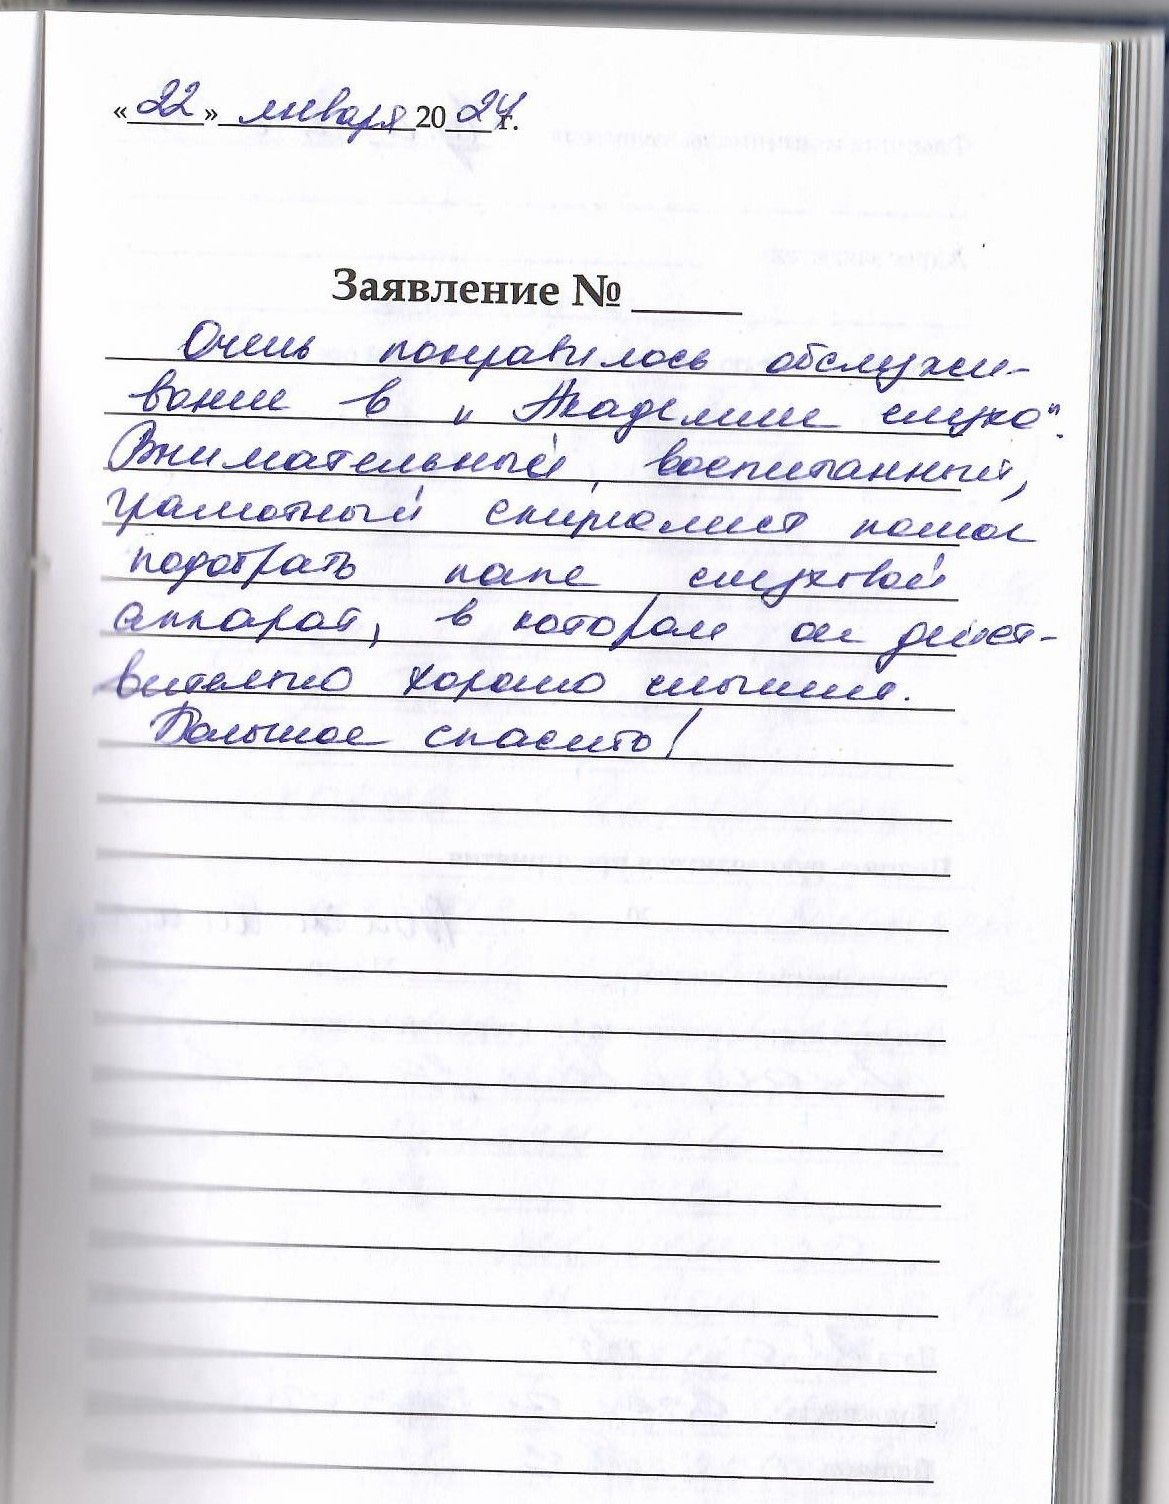 «22» января 2024 г.
Заявление № ____
Очень понравилось обслужи-
вание в "Академии слуха".
Внимательный, воспитанный,
грамотный специалист помог
подобрать папе слуховой
аппарат, в котором он дейст-
вительно хорошо слышит.
Большое спасибо!